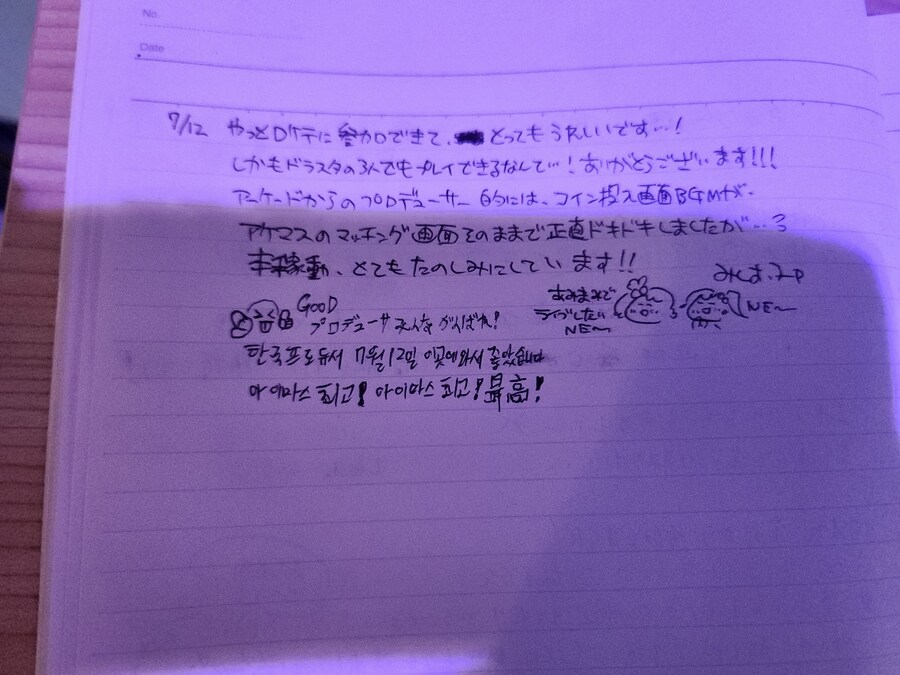 No.
Date
7/12 やっとロケテに参加できて、とってもうれしいです…!
しかもドラスタの3人でもプレイできるなんて…! ありがとうございます!!!
アーケードからのプロデューサー的には、コイン投入画面BGMが、
アケマスのマッチング画面そのままで正直ドキドキしましたが…
本稼動、とてもたのしみにしています!!
GOOD
プロデューサーみんながんばれ!
ライブしたい
NE〜
NE〜
한국프로듀서 7월12일 이곳에와서 좋았습니다
아이마스 최고! 아이마스 최고! 最高!